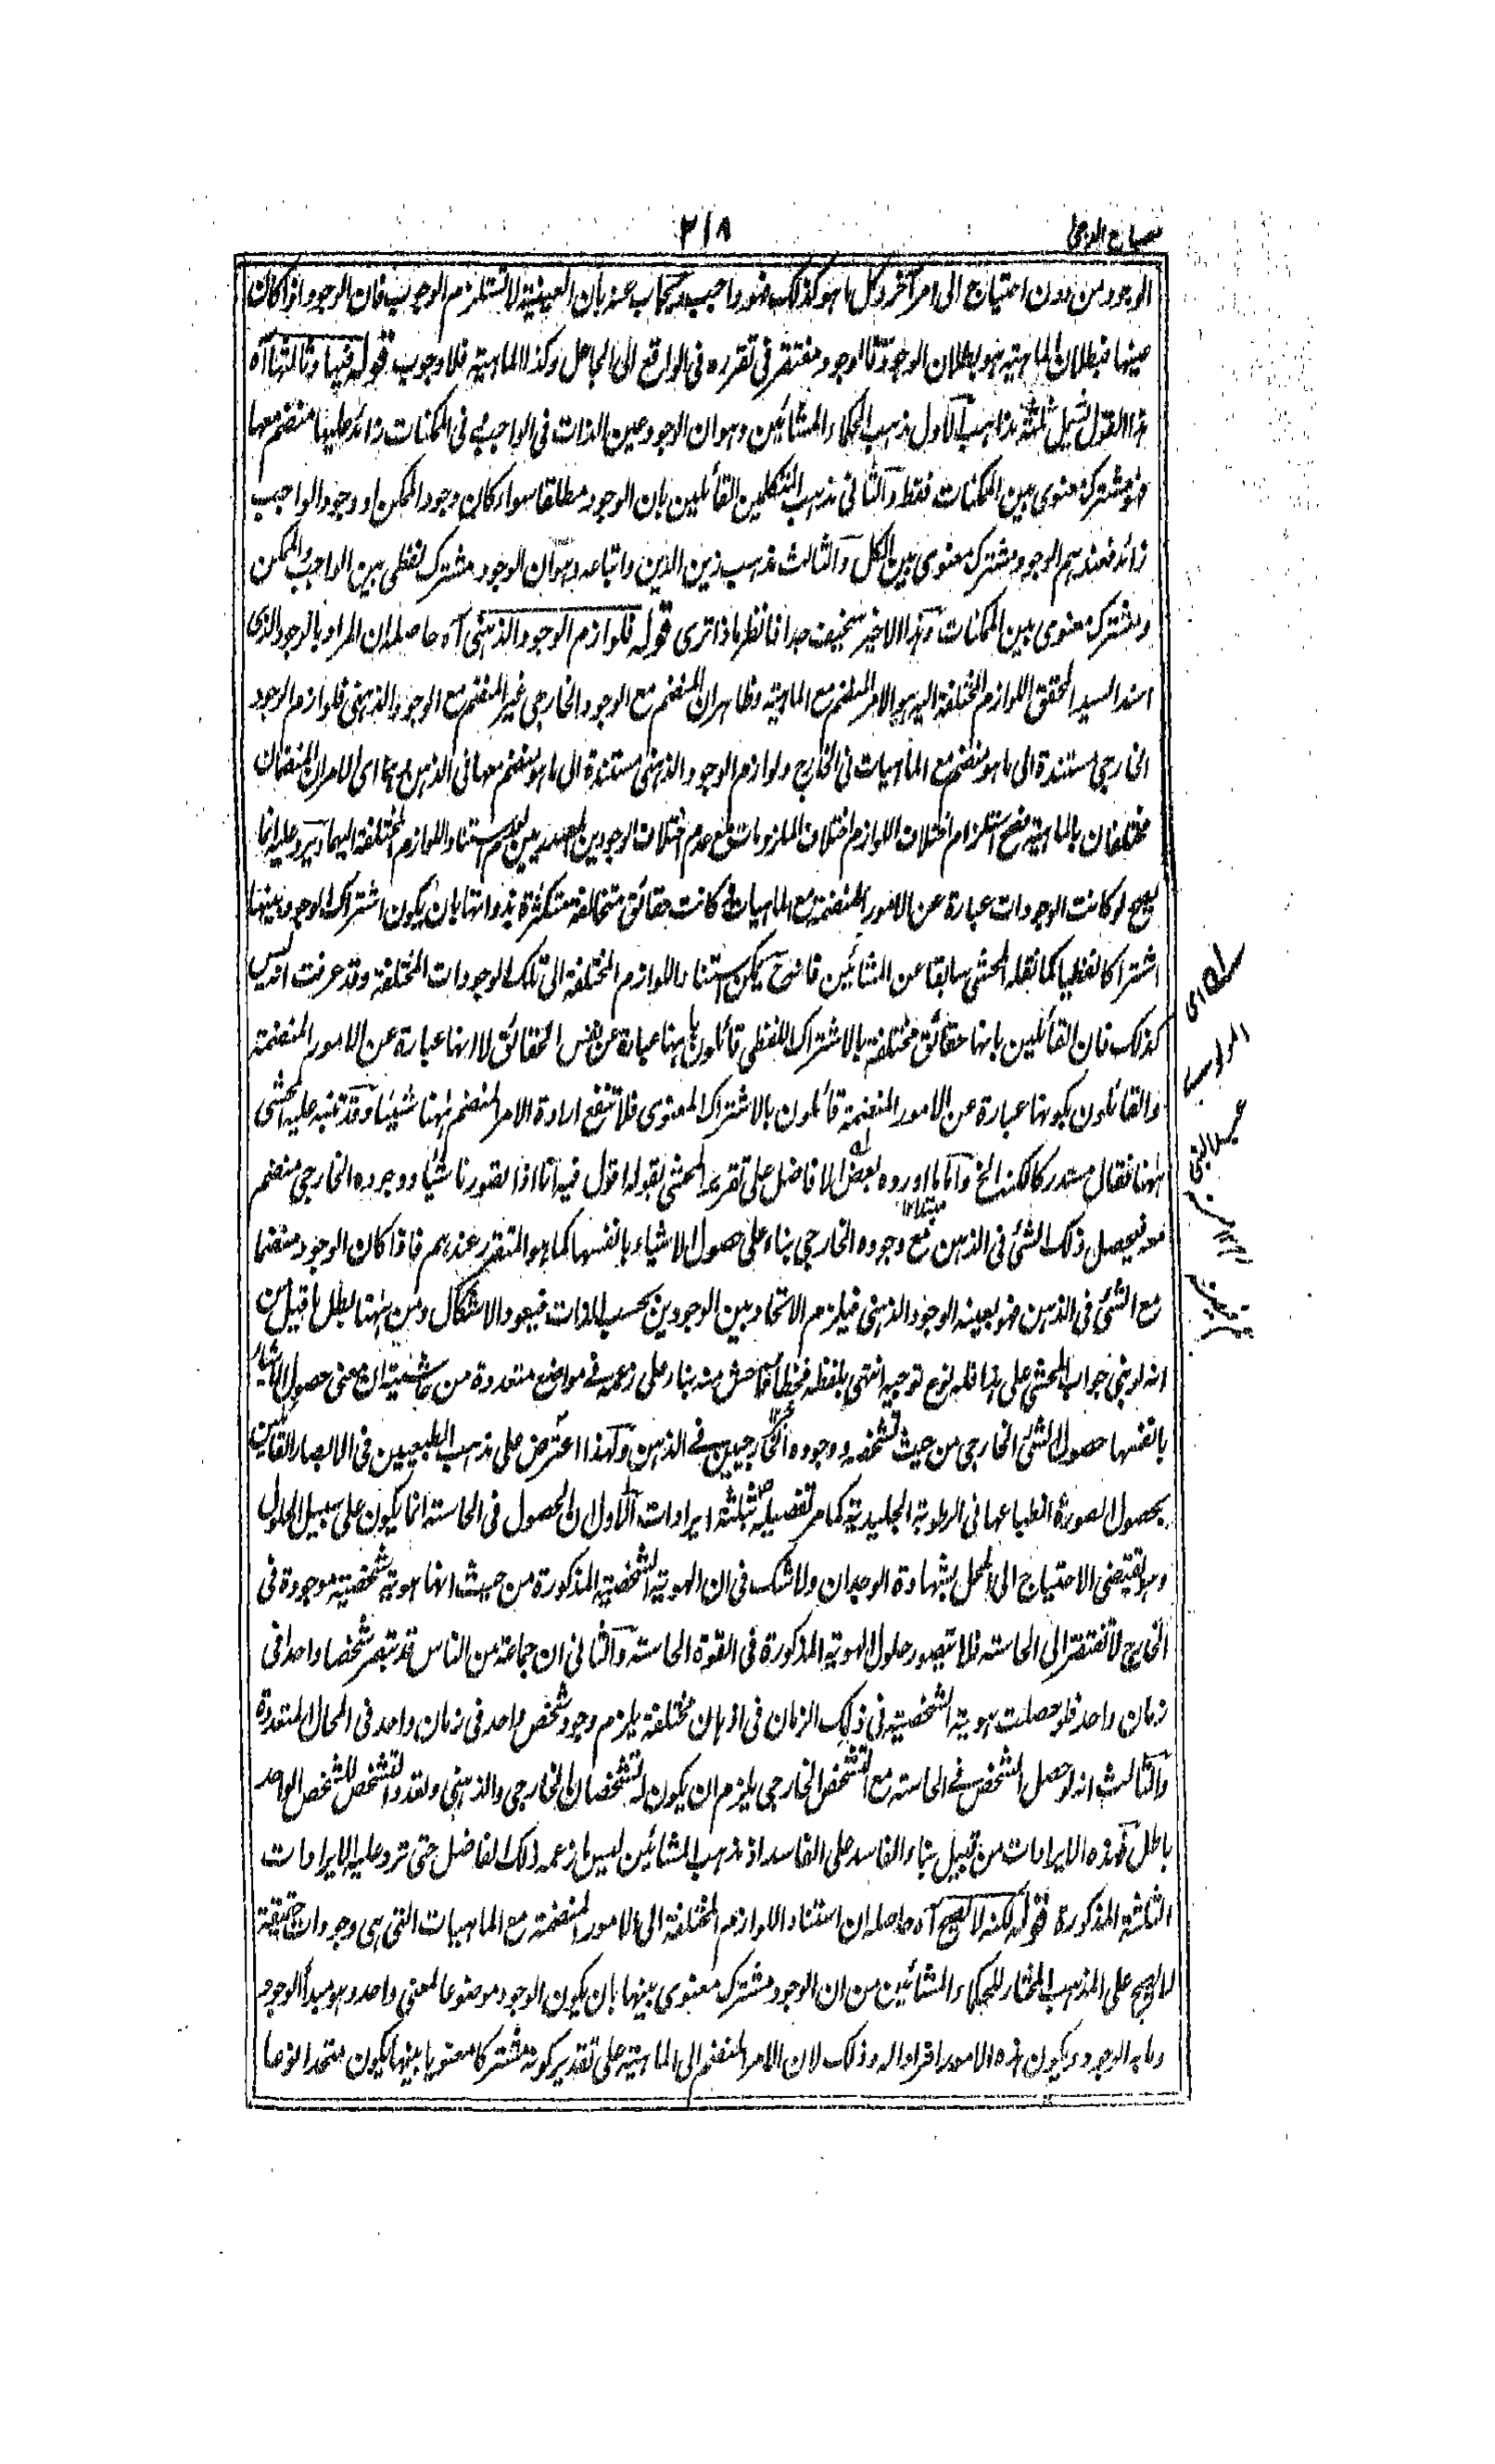 مصباح الدجى
٢١٨
الوجود من دون احتياج الى امر آخر وكل ما هو كذلك فهو واجب ويجاب عنه بان العينية لا تستلزم الوجوب فان الوجود اذا كان
عينها فبطلان الماهية هو بطلان الوجود فالوجود مفتقر فى تقرره فى الواقع الى الجاعل وكذا الماهية فلا وجوب قوله فيها وثالثها آه
هذا القول يشمل ثلثة مذاهب الاول مذهب الحكماء المشائين وهو ان الوجود عين الذات فى الواجب وفى الممكنات زائد عليها منضم معها
فهو مشترك معنوى بين الممكنات فقط والثانى مذهب المتكلمين القائلين بان الوجود مطلقا سواء كان وجود الممكن او وجود الواجب
زائد فعندهم الوجود مشترك معنوى بين الكل والثالث مذهب زين الدين واتباعه وهو ان الوجود مشترك لفظى بين الواجب والممكن
ومشترك معنوى بين الممكنات وهذا الاخير سخيف جدا فانظر ماذا ترى قوله فلوازم الوجود الذهنى آه حاصله ان المراد بالوجود الذى
اسند السيد المحقق اللوازم المختلفة اليه هو الامر المنضم مع الماهية وظاهر ان المنضم مع الوجود الخارجى غير المنضم مع الوجود الذهنى فلوازم الوجود
الخارجى مستندة الى ما هو منضم مع الماهيات فى الخارج ولوازم الوجود الذهنى مستندة الى ما هو منضم معها فى الذهن وهما اى الامران المنضمان
مختلفان بالماهية فصح استلزام اختلاف اللوازم اختلاف الملزومات مع عدم اختلاف الوجودين المصدريين لعدم استناد اللوازم المختلفة اليهما ويرد عليه انما
يصح لو كانت الوجودات عبارة عن الامور المنضمة مع الماهيات وكانت حقائق متخالفة متكثرة بذواتها بان يكون اشتراك الوجود بينها
اشتراكا لفظيا كما نقله المحشى سابقا عن المشائين فانه ح يمكن استناد اللوازم المختلفة الى تلك الوجودات المختلفة وقد عرفت انه ليس
كذلك فان القائلين بانها حقائق مختلفة بالاشتراك اللفظى قائلون بانها عبارة عن نفس الحقائق لا انها عبارة عن الامور المنضمة
والقائلون بكونها عبارة عن الامور المنضمة قائلون بالاشتراك المعنوى فلا تنفع ارادة الامر المنضم ههنا شيئا وقد تنبه عليه المحشى
ههنا فقال مستدركا لكنه الخ واما ما اورده بعض الافاضل على تقرير المحشى بقوله اقول فيه انا اذا تصورنا شيئا ووجوده الخارجى منضم
معه فيحصل ذلك الشئ فى الذهن مع وجوده الخارجى بناء على حصول الاشياء بانفسها كما هو المتقرر عندهم فاذا كان الوجود منضما
مع الشئ فى الذهن فهو بعينه الوجود الذهنى فيلزم الاتحاد بين الوجودين بحسب الذات فيعود الاشكال ومن ههنا بطل ما قيل من
انه لو بنى جواب المحشى على هذا فله نوع توجيه انتهى بلفظه فخطأ فاحش منه بناء على زعمه فى مواضع متعددة من حاشيته ان معنى حصول الاشياء
بانفسها حصول الشئ الخارجى من حيث تشخصه ووجوده الخارجيين فى الذهن ولهذا اعترض على مذهب الطبيعيين فى الابصار القائلين
بحصول الصورة انطباعها فى الرطوبة الجليدية كما مر تفصيله بثلثة ايرادات الاول ان الحصول فى الحاسة انما يكون على سبيل الحلول
وهو يقتضى الاحتياج الى المحل بشهادة الوجدان ولا شك فى ان الهوية الشخصية المذكورة من حيث انها هوية شخصية موجودة فى
الخارج لا تفتقر الى الحاسة فلا يتصور حلول الهوية المذكورة فى القوة الحاسة والثانى ان جماعة من الناس قد تبصر شخصا واحدا فى
زمان واحد فلو حصلت هوية الشخصية فى ذلك الزمان فى اذهان مختلفة يلزم وجود شخص واحد فى زمان واحد فى المحال المتعددة
والثالث انه لو حصل الشخص فى الحاسة مع التشخص الخارجى يلزم ان يكون له تشخصان الخارجى والذهنى وتعدد التشخص للشخص الواحد
باطل وهذه الايرادات من قبيل بناء الفاسد على الفاسد اذ مذهب المشائين ليس ما زعمه ذلك الفاضل حتى ترد عليه الايرادات
الثلثة المذكورة قوله لكنه لا يصح آه حاصله ان استناد اللوازم المختلفة الى الامور المنضمة مع الماهيات التى هى وجودات حقيقة
لا يصح على المذهب المختار للحكماء المشائين من ان الوجود مشترك معنوى بينها بان يكون الوجود موضوعا لمعنى واحد وهو مبدأ الوجود
وما به الوجود ويكون هذه الامور افراد اله وذلك لان الامر المنضم الى الماهية على تقدير كونه مشتركا معنويا بينها يكون متحدا نوعا
اى المولوى
عبد الغنى